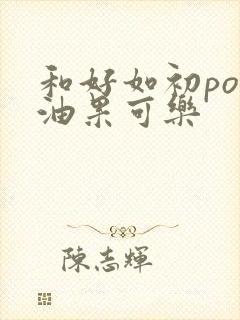 和好如初po
油果可樂
陳志輝